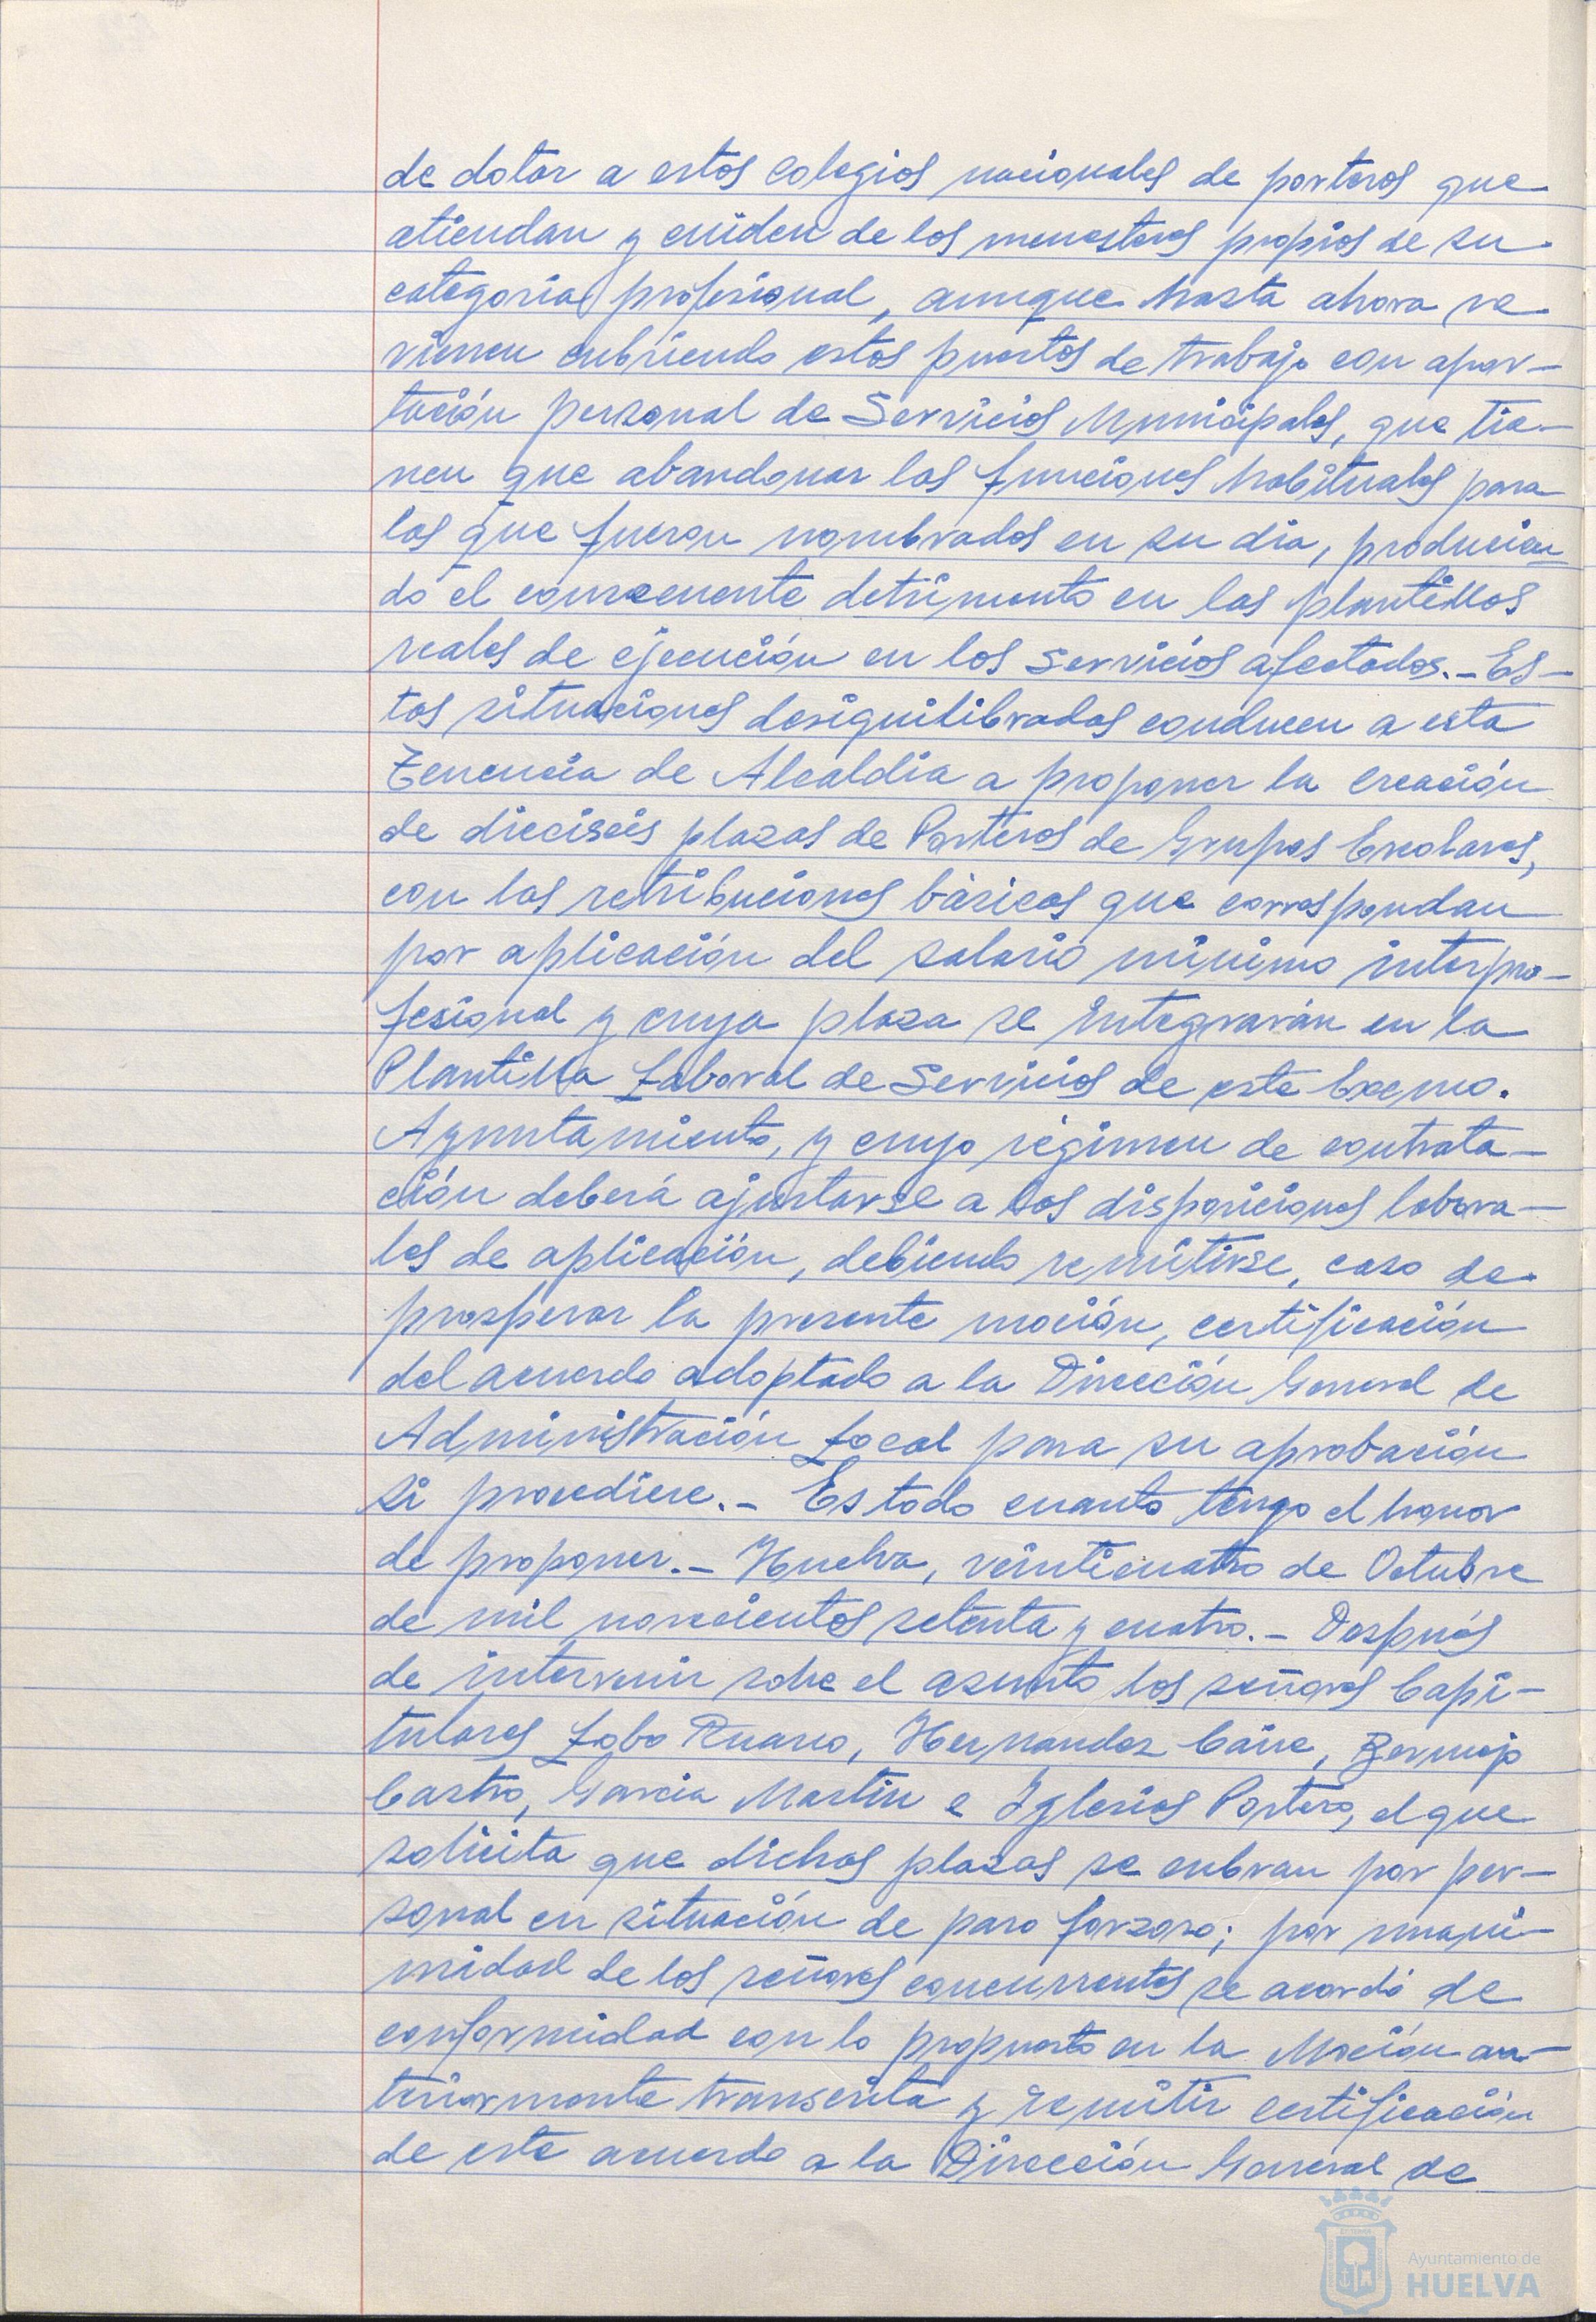 de dotar a estos colegios nacionales de porteros que
atiendan y cuiden de los menesteres propios de su
categoría profesional, aunque hasta ahora se
vienen cubriendo estos puestos de trabajo con apor-
tación personal de Servicios Municipales, que tie-
nen que abandonar las funciones habituales para
las que fueron nombrados en su día, producien-
do el consecuente detrimento en las plantillas
reales de ejecución en los servicios afectados.- Es-
tas situaciones desiquilibradas conducen a esta
Tenencia de Alcaldía a proponer la creación
de dieciséis plazas de Porteros de Grupos Escolares,
con las retribuciones básicas que correspondan
por aplicación del salario mínimo interpro-
fesional y cuya plaza se integrarán en la
Plantilla Laboral de Servicios de este Excmo.
Ayuntamiento, y cuyo régimen de contrata-
ción deberá ajustarse a las disposiciones labora-
les de aplicación, debiendo remitirse, caso de
prosperar la presente moción, certificación
del acuerdo adoptado a la Dirección General de
Administración Local para su aprobación
si procediere.- Es todo cuanto tengo el honor
de proponer.- Huelva, veinticuatro de Octubre
de mil novecientos setenta y cuatro.- Después
de intervenir sobre el asunto los señores Capi-
tulares Lobo Ruano, Hernandez Caire, Bermejo
Castro, Garcia Martin e Iglesias Portero, el que
solicita que dichas plazas se cubran por per-
sonal en situación de paro forzoso; por unani-
midad de los señores concurrentes se acordó de
conformidad con lo propuesto en la Moción an-
teriormente transcrita y remitir certificación
de este acuerdo a la Dirección General de
Ayuntamiento de
HUELVA